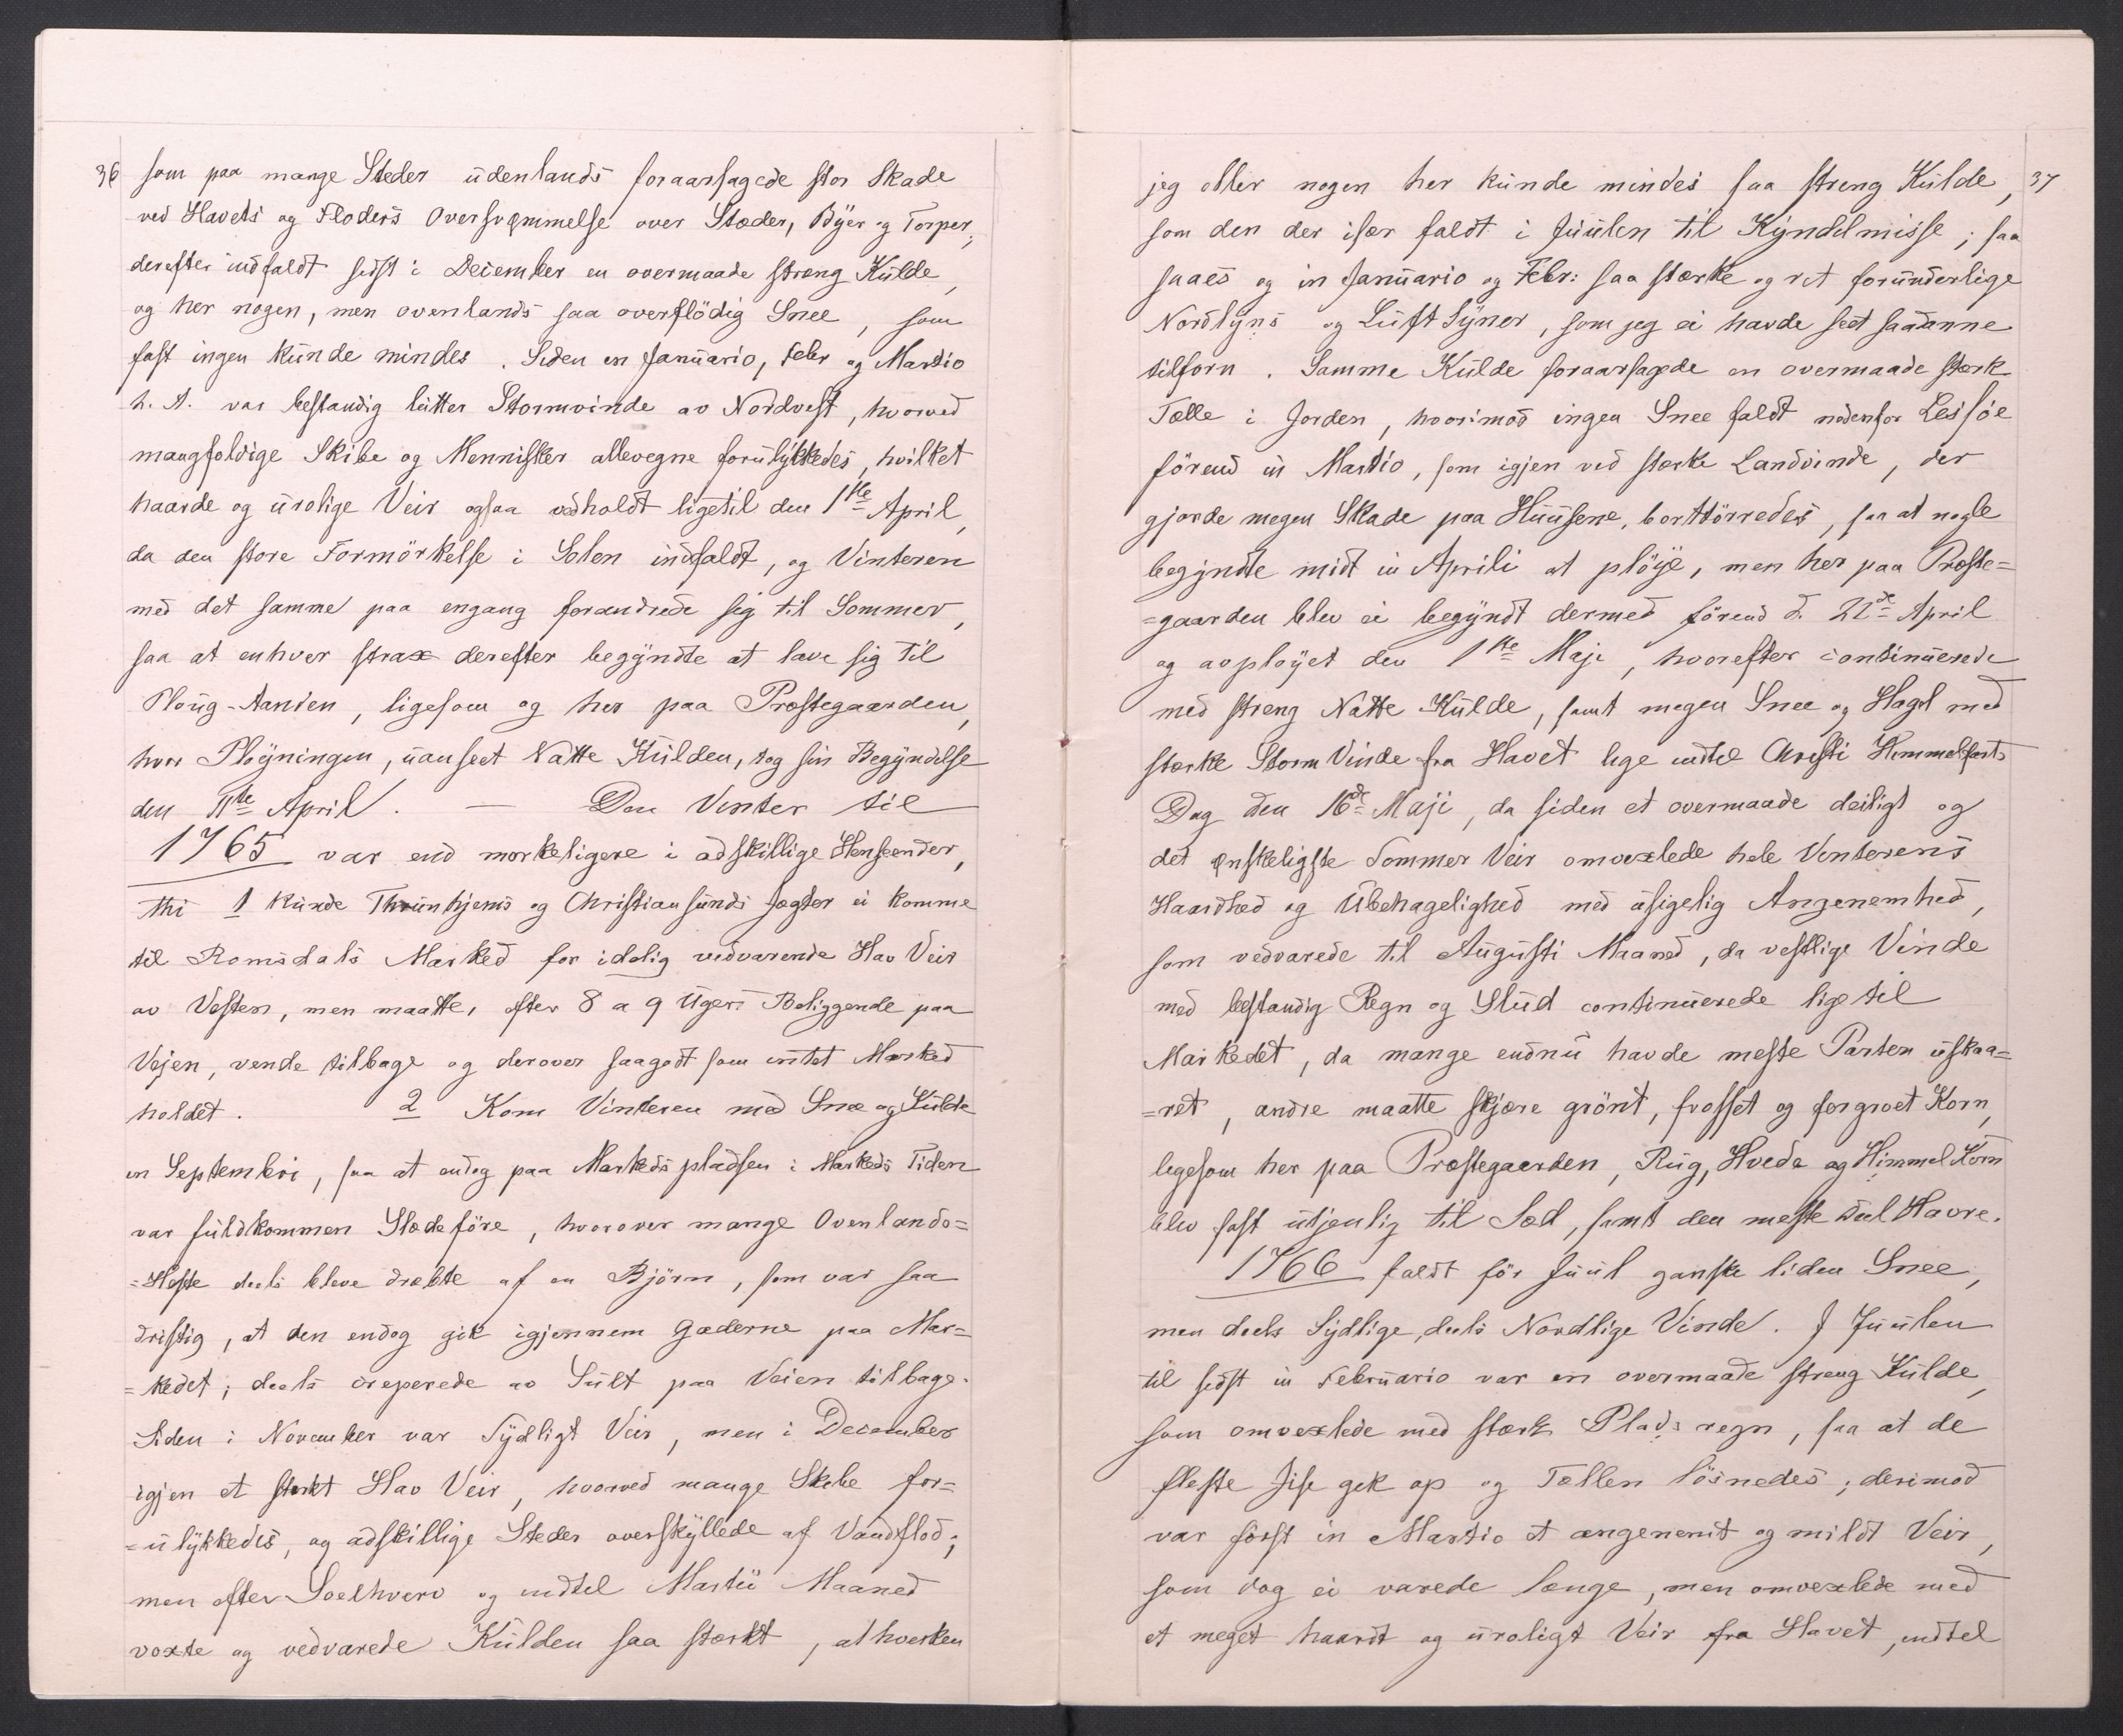 36
som paa mange Steder udenlands foraarsagede stor Skade
ved Havets og Floders Oversvømmelse over Stæder, Byer og Torper;
derefter indfaldt sidst i December en overmaade streng Kulde,
og her nogen, men ovenlands saa overflödig Snee, som
fast ingen kunde mindes. Siden in Januario, Febr og Martio
h. A. var bestandig lutter Stormvinde av Nordvest, hvorved
mangfoldige Skibe og Mennisker allevegne forulykkedes, hvilket
haarde og urolige Veir ogsaa vedholdt ligetil den 1ste April,
da den store Formörkelse i Solen indfaldt, og Vinteren
med det samme paa engang forandrede sig til Sommer,
saa at enhver strax derefter begyndte at lave sig til
Ploug-Aanden, ligesom og her paa Præstegaarden,
hvor Pløyningen, uanseet Natte Kulden, tog sin Begyndelse
den 11te April. — Den Vinter til
1765 var end mærkeligere i adskillige Henseender,
thi 1 kunde Thrunhjems og Christiansunds Jægter ei komme
til Romsdals Marked for idelig vedvarende Hav Veir
av Vesten, men maatte, efter 8 a 9 Ugers Beliggende paa
Vejen, vende tilbage og derover saagodt som intet Marked
holdet. 2 Kom Vinteren med Snee og Kulde
in Septembri, saa at endog paa Markedspladsen i Markeds Tiden
var fuldkommen Slædeföre, hvorover mange Ovenlands=
=Heste deels bleve dræbte af en Björn, som var saa
dristig, at den endog gik igjennem Gæderne paa Mar=
=kedet; deels creperede av Sult paa Veien tilbage.
Siden i November var Sydligt Veir, men i December
igjen et stærkt Hav Veir, hvorved mange Skibe for=
=ulykkedes, og adskillige Steder overskyllede af Vandflod;
men efter Soelhverv og indtil Martii Maaned
voxte og vedvarede Kulden saa stærkt, at hverken
37
jeg eller nogen her kunde mindes saa streng Kulde,
som den der især faldt i Juulen til Kyndelmisse; saa
saaes og in Januario og Febr: saa stærke og ret forunderlige
Nordlyns og Luft Syner, som jeg ei havde seet saadanne
tilforn. Samme Kulde foraarsagede en overmaade stærk
Tælle i Jorden, hvorimod ingen Snee faldt nedenfor Lesjöe
förend in Martio, som igjen ved stærke Landvinde, der
gjorde megen Skade paa Huusene, borttörredes, saa at nogle
begyndte midt in Aprili at plöye, men her paa Præste=
=gaarden blev ei begyndt dermed förend d. 22de April
og avpløyet den 1ste Maji, hvorefter continuerede
med streng Natte Kulde, samt megen Snee og Hagl med
stærke Storm Vinde fra Havet lige indtil Christi Himmelfarts
Dag den 16de Maji, da siden et overmaade deiligt og
det ønskeligste Sommer Veir omvexlede hele Vinterens
Haardhed og Ubehagelighed med usigelig Angenemhed,
som vedvarede til Augusti Maaned, da vestlige Vinde
med bestandig Regn og Slud continuerede lige til
Markedet, da mange endnu havde meste Parten uskaa=
=ret, andre maatte skjære grönt, frosset og forgroet Korn,
ligesom her paa Præstegaarden, Rug, Hvede og Himmel Korn
blev fast utjenlig til Sæd, samt den meste Deel Havre.
1766 faldt för Juul ganske liden Snee,
men deels Sydlige, deels Nordlige Vinde. I Juulen
til sidst in Februario var en overmaade streng Kulde,
som omvexlede med stærk Pladsregn, saa at de
fleste Jise gik op og Tællen lösnedes; derimod
var först in Martio et angenemt og mildt Veir,
som dog ei varede længe, men omvexlede med
et meget haardt og uroligt Veir fra Havet, indtil